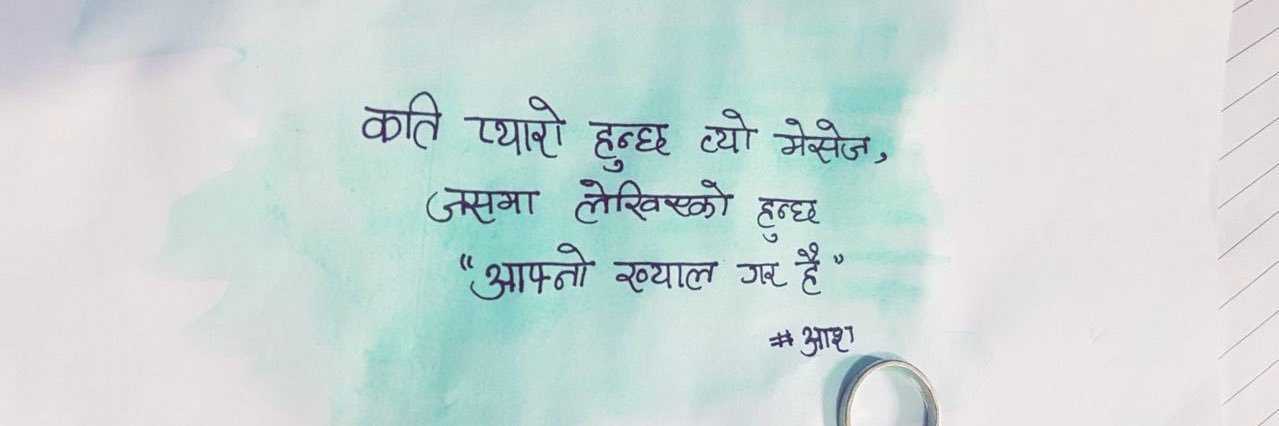 कति प्यारो हुन्छ त्यो मेसेज,
जसमा लेखिएको हुन्छ
"आफ्नो ख्याल गर है"
#आश